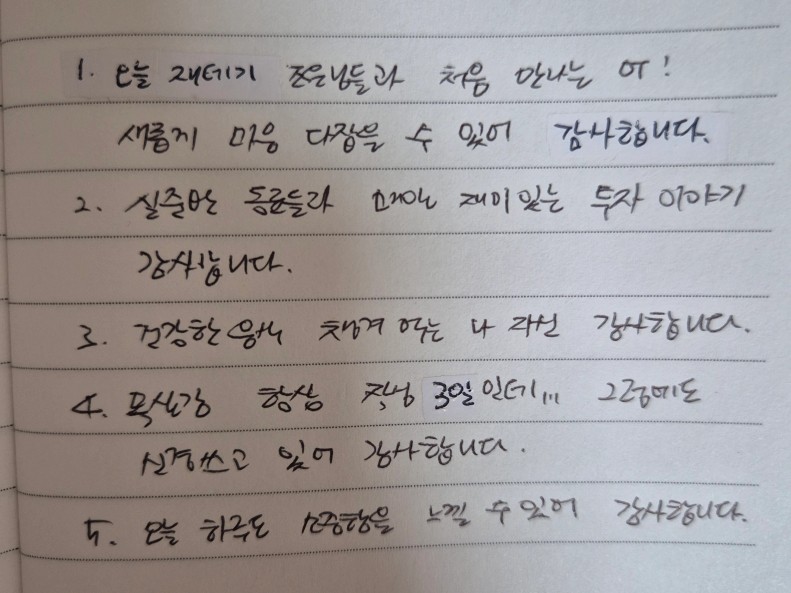 1. 오늘 재테기 조은님들과 처음 만나는 OT!
새롭게 마음 다잡을 수 있어 감사합니다.
2. 실준반 동료들과 재미있는 투자 이야기
감사합니다.
3. 건강한 음식 챙겨 먹는 나 자신 감사합니다.
4. 목실감 항상 작심 3일인데... 그럼에도
신경쓰고 있어 감사합니다.
5. 오늘 하루도 소중함을 느낄 수 있어 감사합니다.